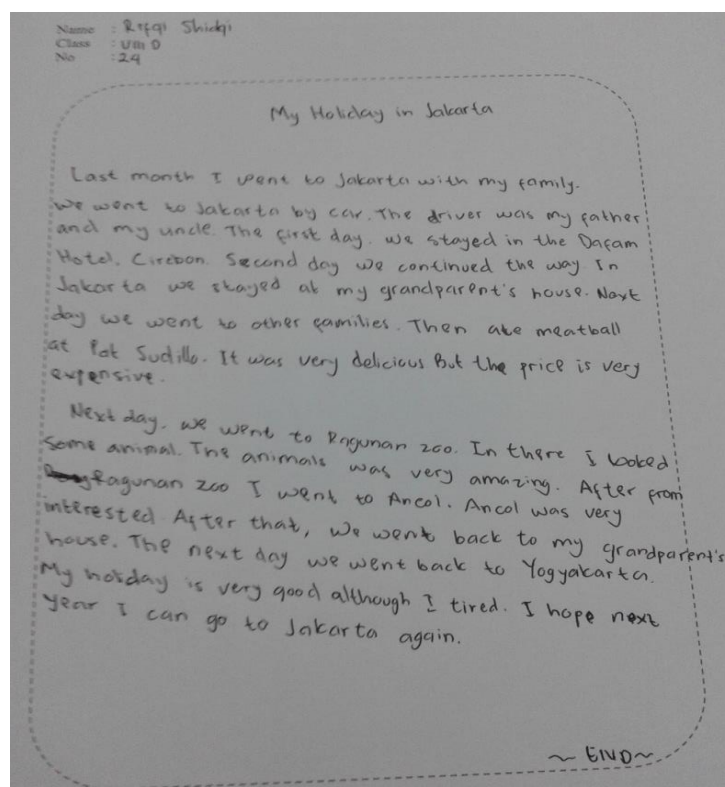 Name : Rifqi Shidqi
Class : VIII D
No : 24
My Holiday in Jakarta
Last month I went to Jakarta with my family.
We went to Jakarta by car. The driver was my father
and my uncle. The first day. we stayed in the Dafam
Hotel. Cirebon. Second day we continued the way In
Jakarta we stayed at my grandparent's house. Next
day we went to other families. Then ate meatball
at Pak Sudillo. It was very delicious But the price is very
expensive.
Next day. we went to Ragunan zoo. In there I looked
some animal. The animals was very amazing. After from
Ragunan zoo I went to Ancol. Ancol was very
interested After that, we went back to my grandparent's
house. The next day we went back to Yogyakarta.
My hoiday is very good although I tired. I hope next
year I can go to Jakarta again.
~ END ~